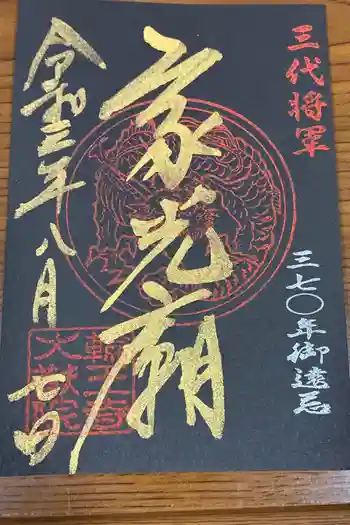 三代将軍
三七〇年御遠忌
家光廟
令和三年八月七日
輪王寺
大猷院